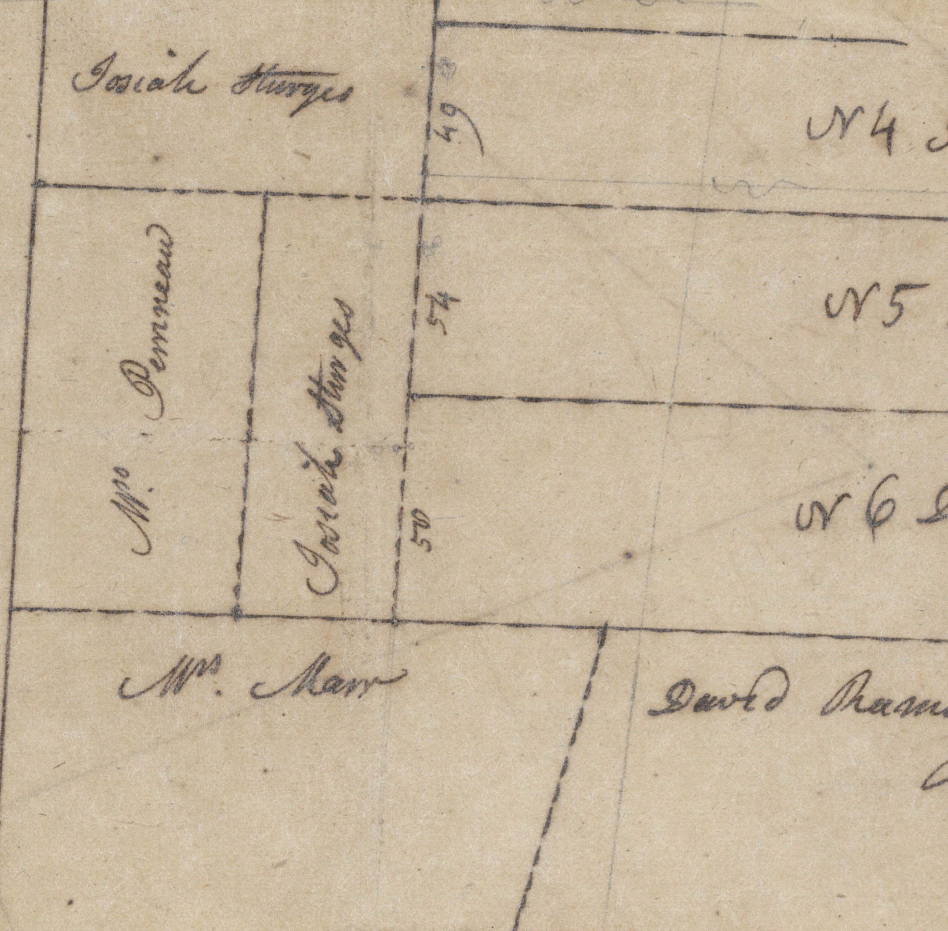 Josiah Sturges
49
N 4
Mrs. Peronneau
Josiah Sturges
54
N 5
50
N 6
Mrs. Marr
David